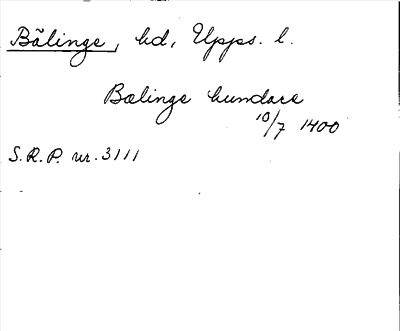 Bälinge, hd, Upps. l.
Bælinge hundare
10/7 1400
S.R.P. nr. 3111